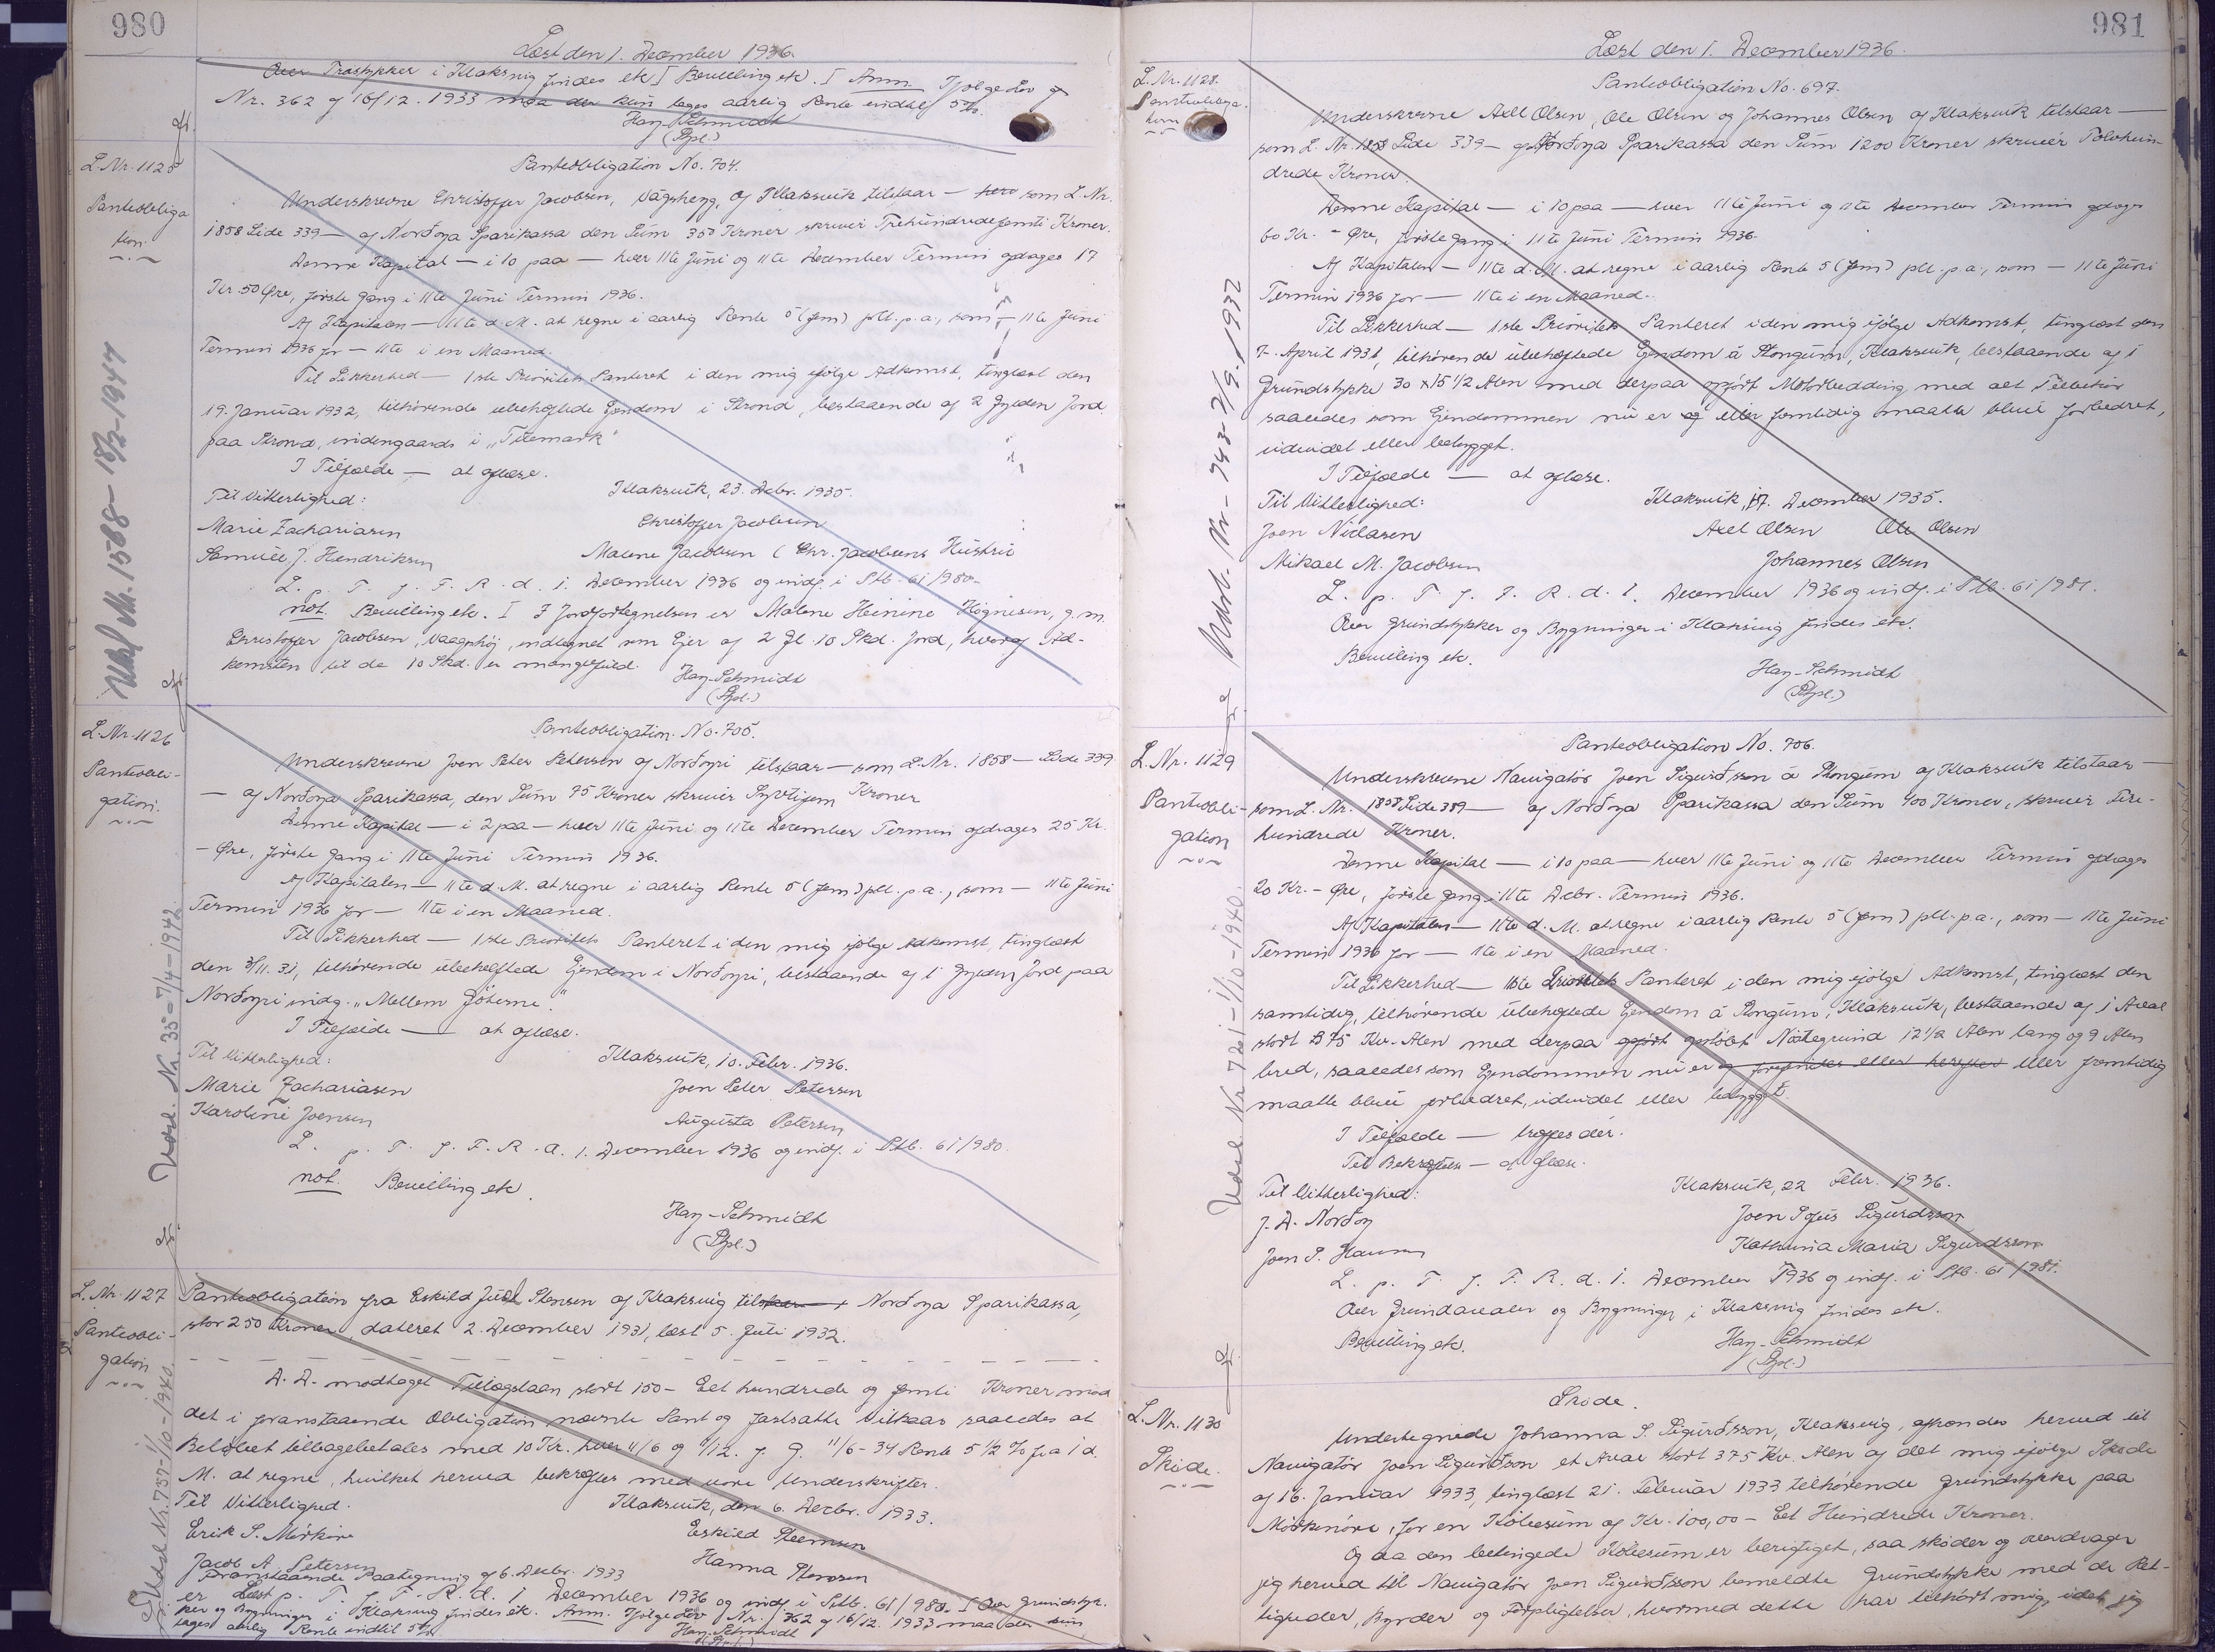 980
Læst den 1. December 1936.
Over Træstykker i Klaksvig findes etc. I Bevilling etc. I Anm. Ifølge Lov
Nr. 362 af 16/12. 1933 maa der kun tages aarlig Rente indtil 5%.
Hay-Schmidt
(Pgl.)
L. Nr. 1125
Panteobliga
tion.
Panteobligation No. 704.
Underskrevne Christoffer Jacobsen, Vágsheyg, af Klaksvik tilstaar — som L. Nr.
1858 Side 339 — af Norðoya Sparikassa den Sum 350 Kroner skriver Trehundredefemti Kroner.
Denne Kapital — i 10 paa — hver 11te Juni og 11te December Termin afdrages 17
Kr 50 Øre, første Gang i 11te Juni Termin 1936.
Af Kapitalen — 11te d. M. at regne i aarlig Rente 5 (fem) pCt. p.a., som — 11te Juni
Termin 1936 for — 11te i en Maaned.
Til Sikkerhed — 1ste Prioritets Panteret i den mig ifølge Adkomst, tinglæst den
19. Januar 1932, tilhørende ubehæftede Ejendom i Strond, bestaaende af 2 Gylden Jord
paa Strond, indengaards i "Titemark"
I Tilfælde — at aflæse.
Til Vitterlighed:
Klaksvik, 23. Debr. 1935.
Marie Zachariasen
Christoffer Jacobsen
Samuel J. Hendriksen
Malene Jacobsen (Chr. Jacobsens Hustru
L. p. T. f. F. R. d. 1. December 1936 og indf. i Ptb. 61/980-
not. Bevilling etc. I I Jordfortegnelsen er Malene Heinine Høgnesen, g. m.
Christoffer Jacobsen, Vaagshøj, indtegnet som Ejer af 2 Gl. 10 Skd. Jord, hvoraf Ad-
komsten til de 10 Skd. er mangelfuld.
Hay-Schmidt
(Pgl.)
Udsl. Nr. 1588 - 18/2-1947
L. Nr. 1126
Panteobli-
gation.
Panteobligation No. 705.
Underskrevne Joen Peter Petersen af Norðoyri tilstaar — som L. Nr. 1858 — Side 339
— af Norðoya Sparikassa, den Sum 75 Kroner skriver Syvtifem Kroner
Denne Kapital — i 2 paa — hver 11te Juni og 11te December Termin afdrages 25 Kr.
- Øre, første Gang i 11te Juni Termin 1936.
Af Kapitalen — 11te d. M. at regne i aarlig Rente 5 (fem) pCt. p.a., som — 11te Juni
Termin 1936 for — 11te i en Maaned.
Til Sikkerhed — 1ste Prioritets Panteret i den mig ifølge Adkomst, tinglæst
den 3/11. 31, tilhørende ubehæftede Ejendom i Norðoyri, bestaaende af 1 Gylden Jord paa
Norðoyri indg. "Mellem Gøterne."
I Tilfælde — at aflæse.
Til Vitterlighed:
Klaksvik, 10. Febr. 1936.
Marie Zachariasen
Joen Peter Petersen
Karoline Joensen
Augusta Petersen
L. p. T. f. F. R. d. 1. December 1936 og indf. i Ptb. 61/980.
not. Bevilling etc.
Hay-Schmidt
(Pgl.)
Udsl. Nr. 35 - 7/4-1942
L. Nr. 1127
Panteobli-
gation
Panteobligation fra Eskild Juul Stensen af Klaksvig til Norðoya Sparikassa,
stor 250 Kroner, dateret 2. December 1931, læst 5. Juli 1932.
D. D. modtaget Tillægslaan stort 150 - Eet hundrede og femti Kroner mod
det i foranstaaende Obligation nævnte Pant og fastsatte Vilkaar saaledes at
Beløbet tilbagebetales med 10 Kr. hver 11/6 og 11/12. f. G. 11/6 - 34 Rente 5 1/2 % fra 1 d.
M. at regne, hvilket herved bekræftes med vore Underskrifter.
Til Vitterlighed.
Klaksvik, den 6. Decbr. 1933.
Erik S. Mørkøre
Eskild Stensen
Jacob A. Petersen
Hanna Stensen
Foranstaaende Paategning af 6. Decbr. 1933
er Læst p. T. f. F. R. d. 1 December 1936 og indf. i Ptb. 61/980. I Over Grundstyk-
ker og Bygninger i Klaksvig findes etc. Anm. Ifølge Lov Nr. 362 af 16/12. 1933 maa der kun
tages aarlig Rente indtil 5%.
Hay-Schmidt
(Pgl.)
Udsl. Nr. 757 - 1/10-1940.
981
Læst den 1. December 1936.
L. Nr. 1128.
Panteobliga-
tion
Panteobligation No. 697.
Underskrevne Axel Olsen, Ole Olsen og Johannes Olsen af Klaksvik tilstaar —
som L. Nr. 1858 Side 339 — af Norðoya Sparikassa den Sum 1200 Kroner skriver Tolvhun-
drede Kroner.
Denne Kapital — i 10 paa — hver 11te Juni og 11te December Termin afdrages
60 Kr. - Øre, første Gang i 11te Juni Termin 1936.
Af Kapitalen — 11te d. M. at regne i aarlig Rente 5 (fem) pCt. p.a., som — 11te Juni
Termin 1936 for — 11te i en Maaned.
Til Sikkerhed — 1ste Prioritets Panteret i den mig ifølge Adkomst, tinglæst den
7. April 1931, tilhørende ubehæftede Ejendom á Stongum, Klaksvik, bestaaende af 1
Grundstykke 30 x 15 1/2 Alen med derpaa opført Motorbedding med alt Tilbehør
saaledes som Ejendommen nu er og eller fremtidig maatte blive forbedret,
udvidet eller bebygget.
I Tilfælde — at aflæse.
Til Vitterlighed:
Klaksvik, 17. December 1935.
Joen Niclasen
Axel Olsen Ole Olsen
Mikael M. Jacobsen
Johannes Olsen
L. p. T. f. F. R. d. 1. December 1936 og indf. i Ptb. 61/981.
Over Grundstykker og Bygninger i Klaksvig findes etc.
Bevilling etc.
Hay-Schmidt
(Pgl.)
Udsl. Nr - 743 - 7/9. 1937
L. Nr. 1129
Panteobli-
gation
Panteobligation No. 706.
Underskrevne Navigatør Joen Sigurðsson á Stongum af Klaksvik tilstaar —
som L. Nr. 1858 Side 339 — af Norðoya Sparikassa den Sum 400 Kroner, skriver Fire-
hundrede Kroner.
Denne Kapital — i 10 paa — hver 11te Juni og 11te December Termin afdrages
20 Kr. - Øre, første Gang i 11te Debr. Termin 1936.
Af Kapitalen — 11te d. M. at regne i aarlig Rente 5 (fem) pCt. p.a., som — 11te Juni
Termin 1936 for — 11te i en Maaned.
Til Sikkerhed — 1ste Prioritets Panteret i den mig ifølge Adkomst, tinglæst den
samtidig, tilhørende ubehæftede Ejendom á Stongum, Klaksvik, bestaaende af 1 Areal
stort 375 Kv. Alen med derpaa opført opstøbt Nøstegrund 12 1/2 Alen lang og 9 Alen
bred, saaledes som Ejendommen nu er og forefindes eller herefter eller fremtidig
maatte blive forbedret, udvidet eller bebygget.
I Tilfælde — træffes der.
Til Bekræftelse — at aflæse.
Til Vitterlighed:
Klaksvik, 22 Febr. 1936.
J. D. Norðoy
Joen Sigurdsson
Joen P. Hansen
Kathrina Maria Sigurdsson
L. p. T. f. F. R. d. 1. December 1936 og indf. i Ptb. 61/981.
Over Grundarealer og Bygninger i Klaksvig findes etc.
Bevilling etc.
Hay-Schmidt
(Pgl.)
Udsl Nr 721 - 1/10-1940.
L. Nr. 1130
Skøde.
Skøde.
Undertegnede Johanna S. Sigurðsson, Klaksvig, afhænder herved til
Navigatør Joen Sigurðsson et Areal stort 375 Kv. Alen af det mig ifølge Skøde
af 16. Januar 1933, tinglæst 21. Februar 1933 tilhørende Grundstykke paa
Mørkenøre, for en Købesum af Kr. 100,00 - Eet Hundrede Kroner.
Og da den betingede Købesum er berigtiget, saa skøder og overdrager
jeg herved til Navigatør Joen Sigurðsson bemeldte Grundstykke med de Ret-
tigheder, Byrder og Forpligtelser, hvormed dette har tilhørt mig, idet jeg